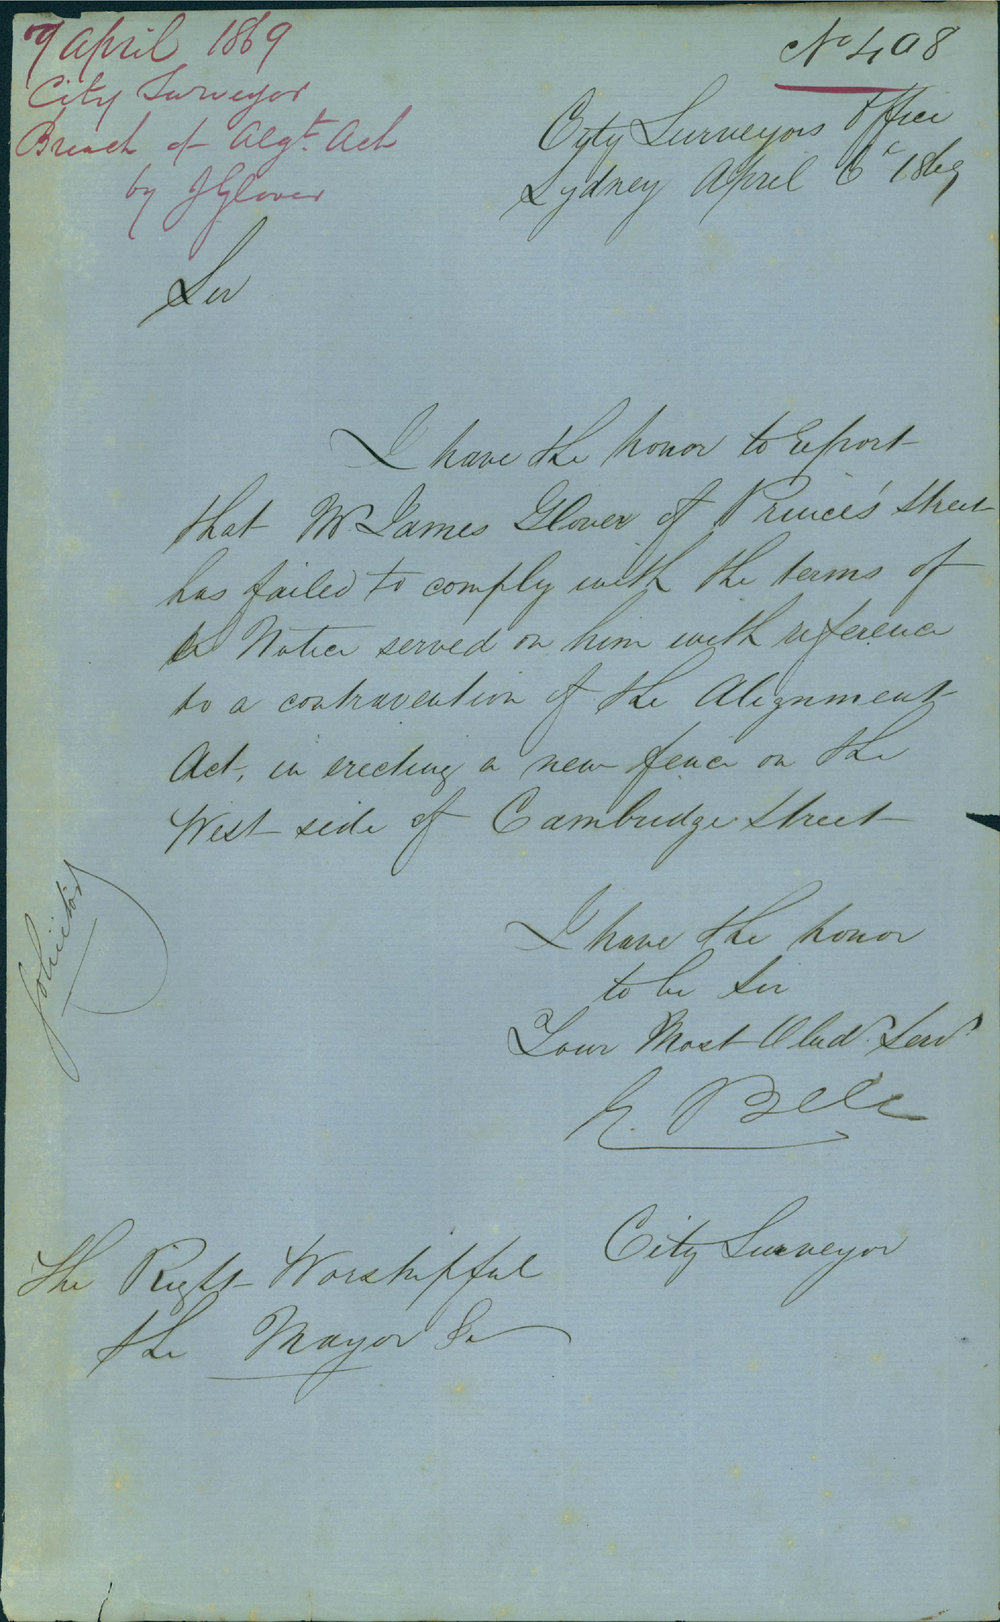 7 April 1869
City Surveyor
Breach of Algt. Act
by J Glover
No 408
City Surveyors Office
Sydney April 6th 1869
Sir
I have the honor to report
that Mr James Glover of Prince's Street
has failed to comply with the terms of
a Notice served on him with reference
to a contravention of the Alignment
Act, in erecting a new fence on the
West side of Cambridge Street
Solicitor
I have the honor
to be Sir
Your Most Obed. Serv.
E. Bell
City Surveyor
The Right Worshipful
the Mayor &c